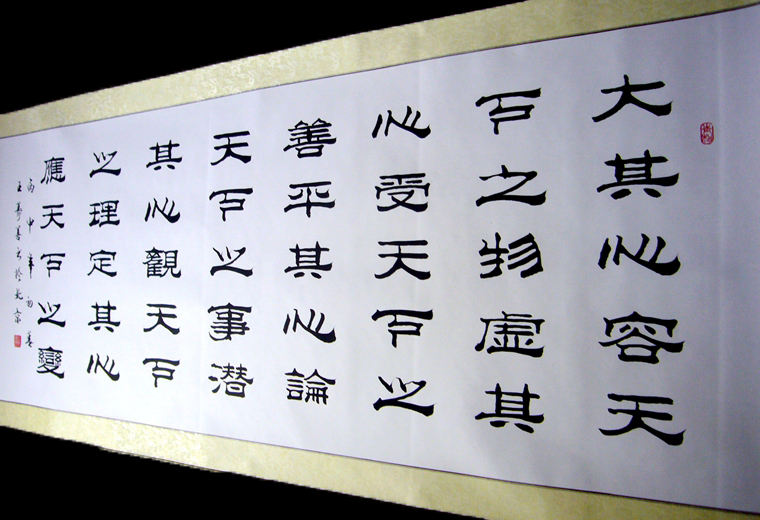 大其心容天
下之物虚其
心受天下之
善平其心論
天下之事潜
其心觀天下
之理定其心
應天下之變
丙申年初春
王善書於北京